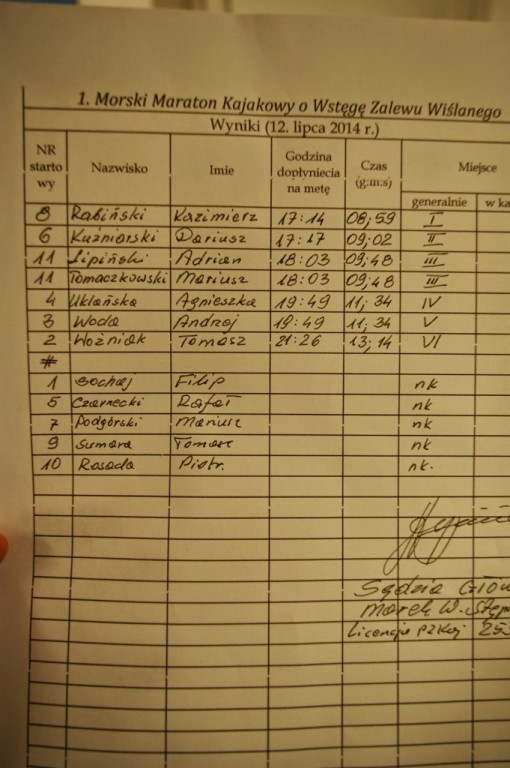 1. Morski Maraton Kajakowy o Wstęgę Zalewu Wiślanego
Wyniki (12. lipca 2014 r.)
NR startowy Nazwisko Imie Godzina dopłyniecia na metę Czas (g:m:s) Miejsce
generalnie w ka
8 Rabiński Kazimierz 17:14 08;59 I
6 Kuźniarski Dariusz 17:17 09;02 II
11 Lipiński Adrian 18:03 09;48 III
11 Tomaczkowski Mariusz 18:03 09;48 III
4 Uklańska Agnieszka 19:49 11;34 IV
3 Woda Andrzej 19:49 11;34 V
2 Woźniak Tomasz 21:26 13;14 VI
1 Sochaj Filip nk
5 Czarnecki Rafał nk
7 Podgórski Mariusz nk
9 Sumara Tomasz nk
10 Rasada Piotr. nk.
Sędzia Głów
Marek W. Stęp
Licencja PZKaj 253